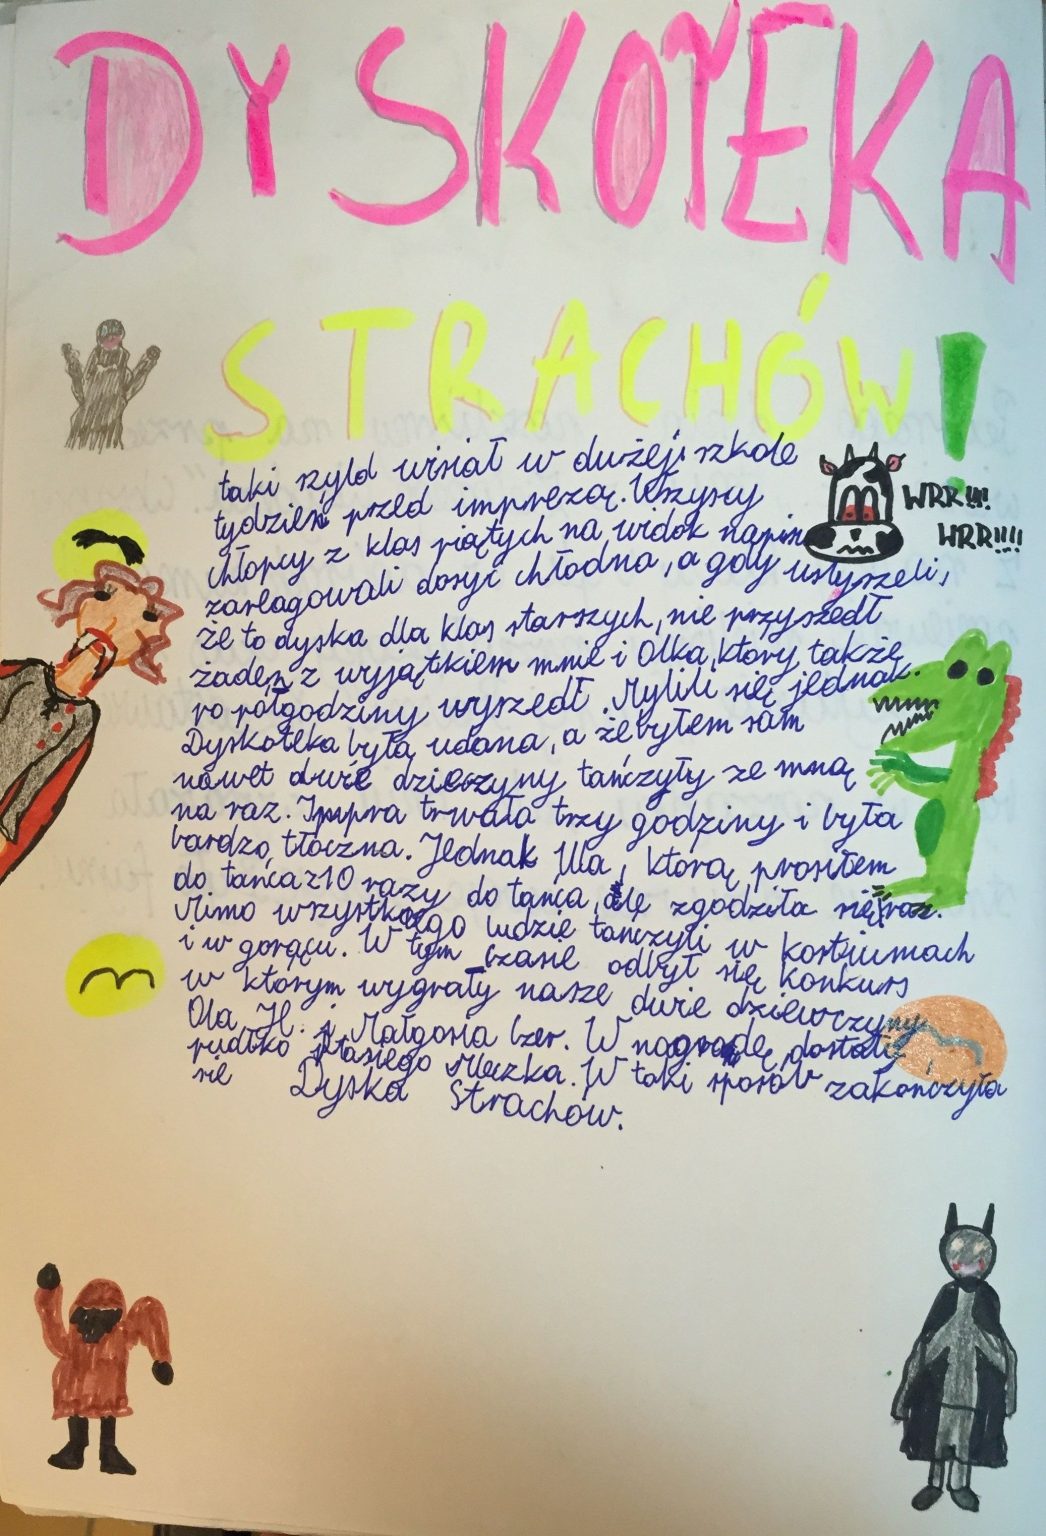 DYSKOTEKA
STRACHÓW!
taki szyld wisiał w dużej szkole
tydzień przed imprezą. Wszyscy
WRR!!!
WRR!!!!
chłopcy z klas piątych na widok napisu
zareagowali dosyć chłodna, a gdy usłyszeli,
że to dyska dla klas starszych, nie przyszedł
żaden z wyjątkiem mnie i Olka, który także
po półgodziny wyszedł. Mylili się jednak.
Dyskoteka była udana, a że byłem sam
nawet dwie dzieczyny tańczyły ze mną
na raz. Impra trwała trzy godziny i była
bardzo tłoczna. Jednak Ula, którą prosiłem
do tańca z 10 razy do tańca, zgodziła się raz.
Mimo wszystkiego ludzie tańczyli w kostjumach
i w gorącu. W tym czasie odbył się konkurs
w którym wygrały nasze dwie dziewczyny
Ola H. i Małgosia Czer. W nagrodę dostały
pudłko Ptasiego Mleczka. W taki sposób zakończyła
się Dyska Strachów.